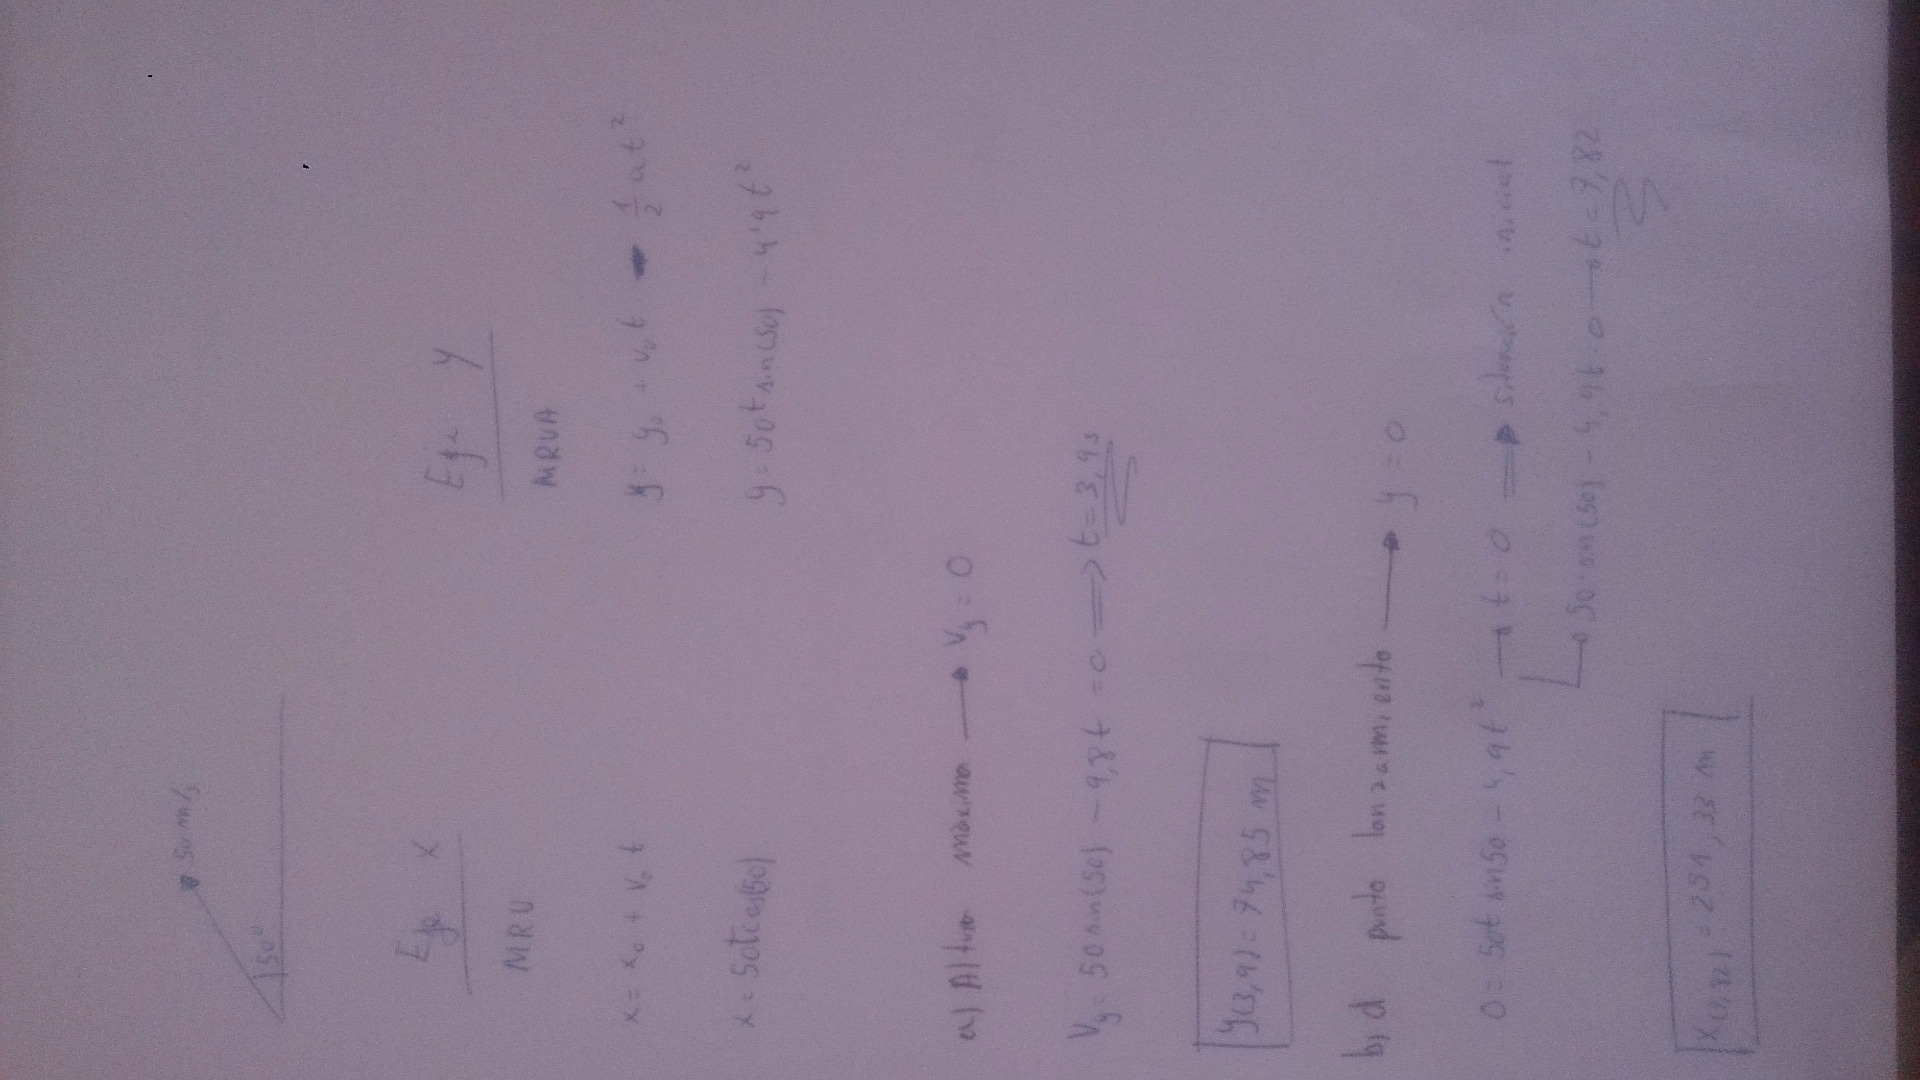 50 m/s
50°
Eje x
Eje y
MRU
MRUA
x = x₀ + v₀ t
y = y₀ + v₀ t - 1/2 at²
x = 50t cos(50)
y = 50t sin(50) - 4'9t²
a) Altura máxima → Vy = 0
Vy = 50 sin(50) - 9,8t = 0 ⟹ t = 3,9s
y(3,9) = 74,85 m
b) d punto lanzamiento → y = 0
0 = 50t sin50 - 4,9t² → t = 0 ⟹ situación inicial
↳ 50 sin(50) - 4,9t = 0 → t = 7,82
x(7,82) = 251,33 m